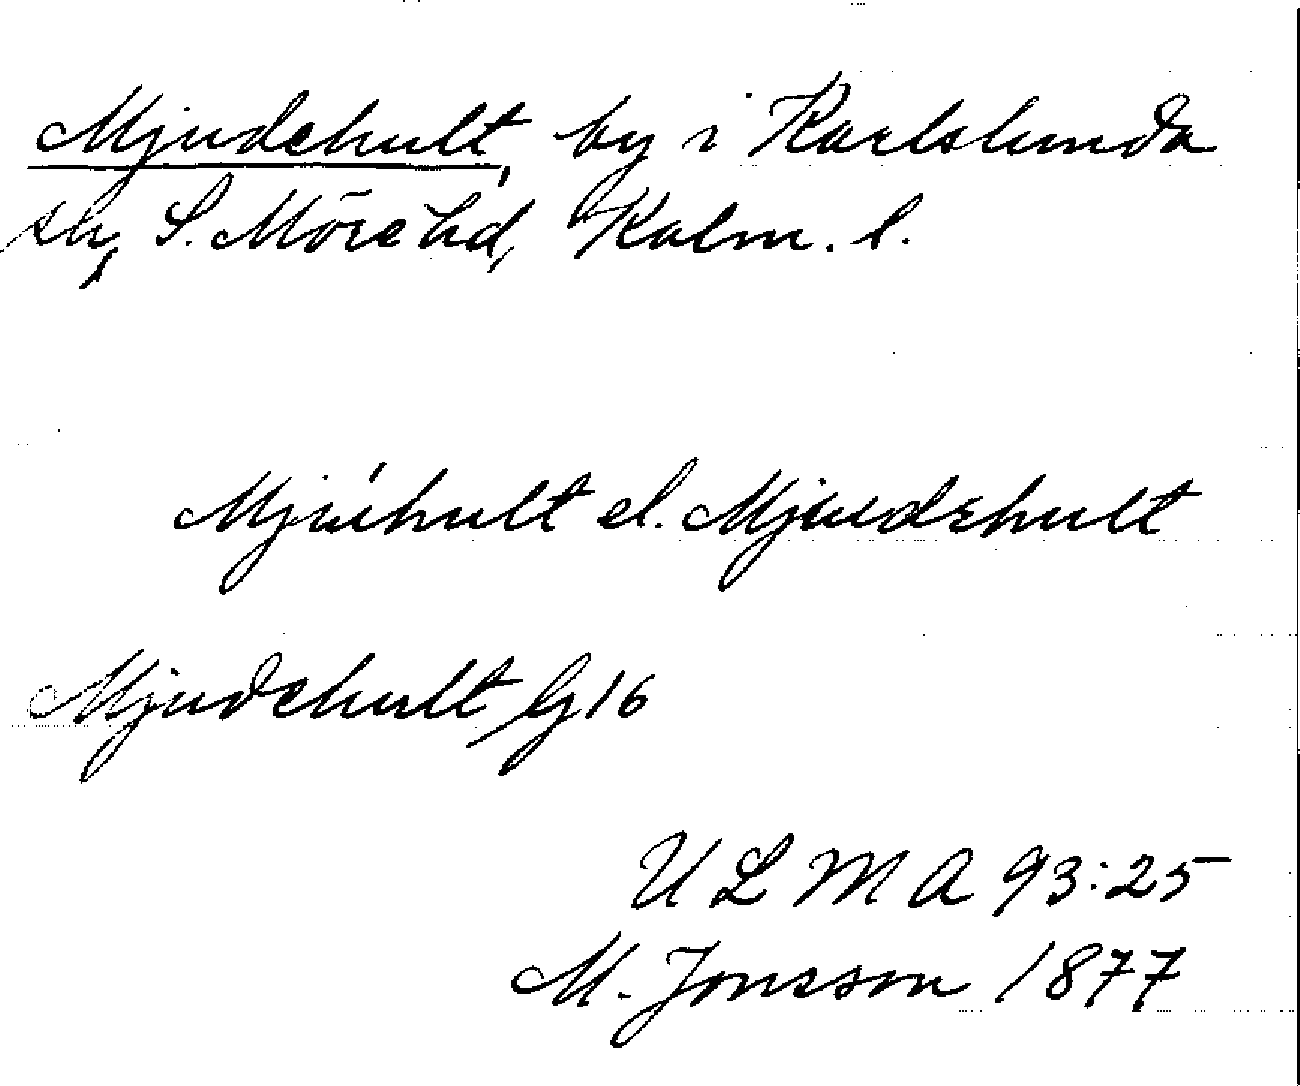 Mjudehult, by i Karlslunda
sn, S. Möre hd, Kalm. l.
Mjúhult el. Mjudehult
Mjudehult Gj 16
ULMA 93:25
M. Jonsson 1877